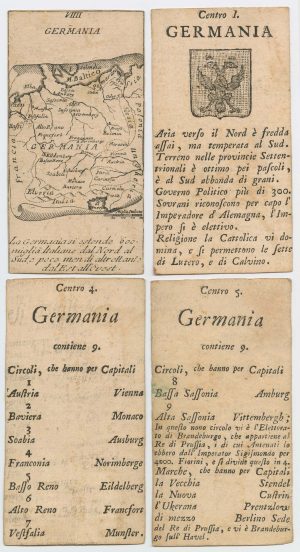 VIIII
GERMANIA
M. Baltico
GERMANIA
La Germania si estende 600
miglia Italiane dal Nord al
Sud e poco men di altretanti
dal Est all'Ovest
Centro I.
GERMANIA
Aria verso il Nord è fredda
assai, ma temperata al Sud.
Terreno nelle provincie Setten-
trionali è ottimo pei pascoli,
e al Sud abbonda di grani.
Governo Politico più di 300.
Sovrani riconoscono per capo l'
Imperadore d'Alemagna, l'Im-
pero si è elettivo.
Religione la Cattolica vi do-
mina, e si permettono le sette
di Lutero, e di Calvino.
Centro 4.
Germania
contiene 9.
Circoli, che hanno per Capitali
1
Austria Vienna
2
Baviera Monaco
3
Soabia Ausburg
4
Franconia Norimberge
5
Basso Reno Eildelberg
6
Alto Reno Francfort
7
Vestfalia Munster.
Centro 5.
Germania
contiene 9.
Circoli, che hanno per Capitali
8
Bassa Sassonia Amburg
9
Alta Sassonia Vittembergh;
In questo nono circolo vi è l'Elettora-
to di Brandeburgo, che appartiene al
Re di Prussia, i di cui Antenati lo
ebbero dall'Imperator Sigismondo per
4000. Fiorini, e si divide questo in 4.
Marche, che hanno per Capitali
la Vecchia Stendel
la Nuova Custrin
l'Ukerana Prentzlow
di mezzo Berlino Sede
del Re di Prussia, e vi è Brandeburgo
sull' Havel.